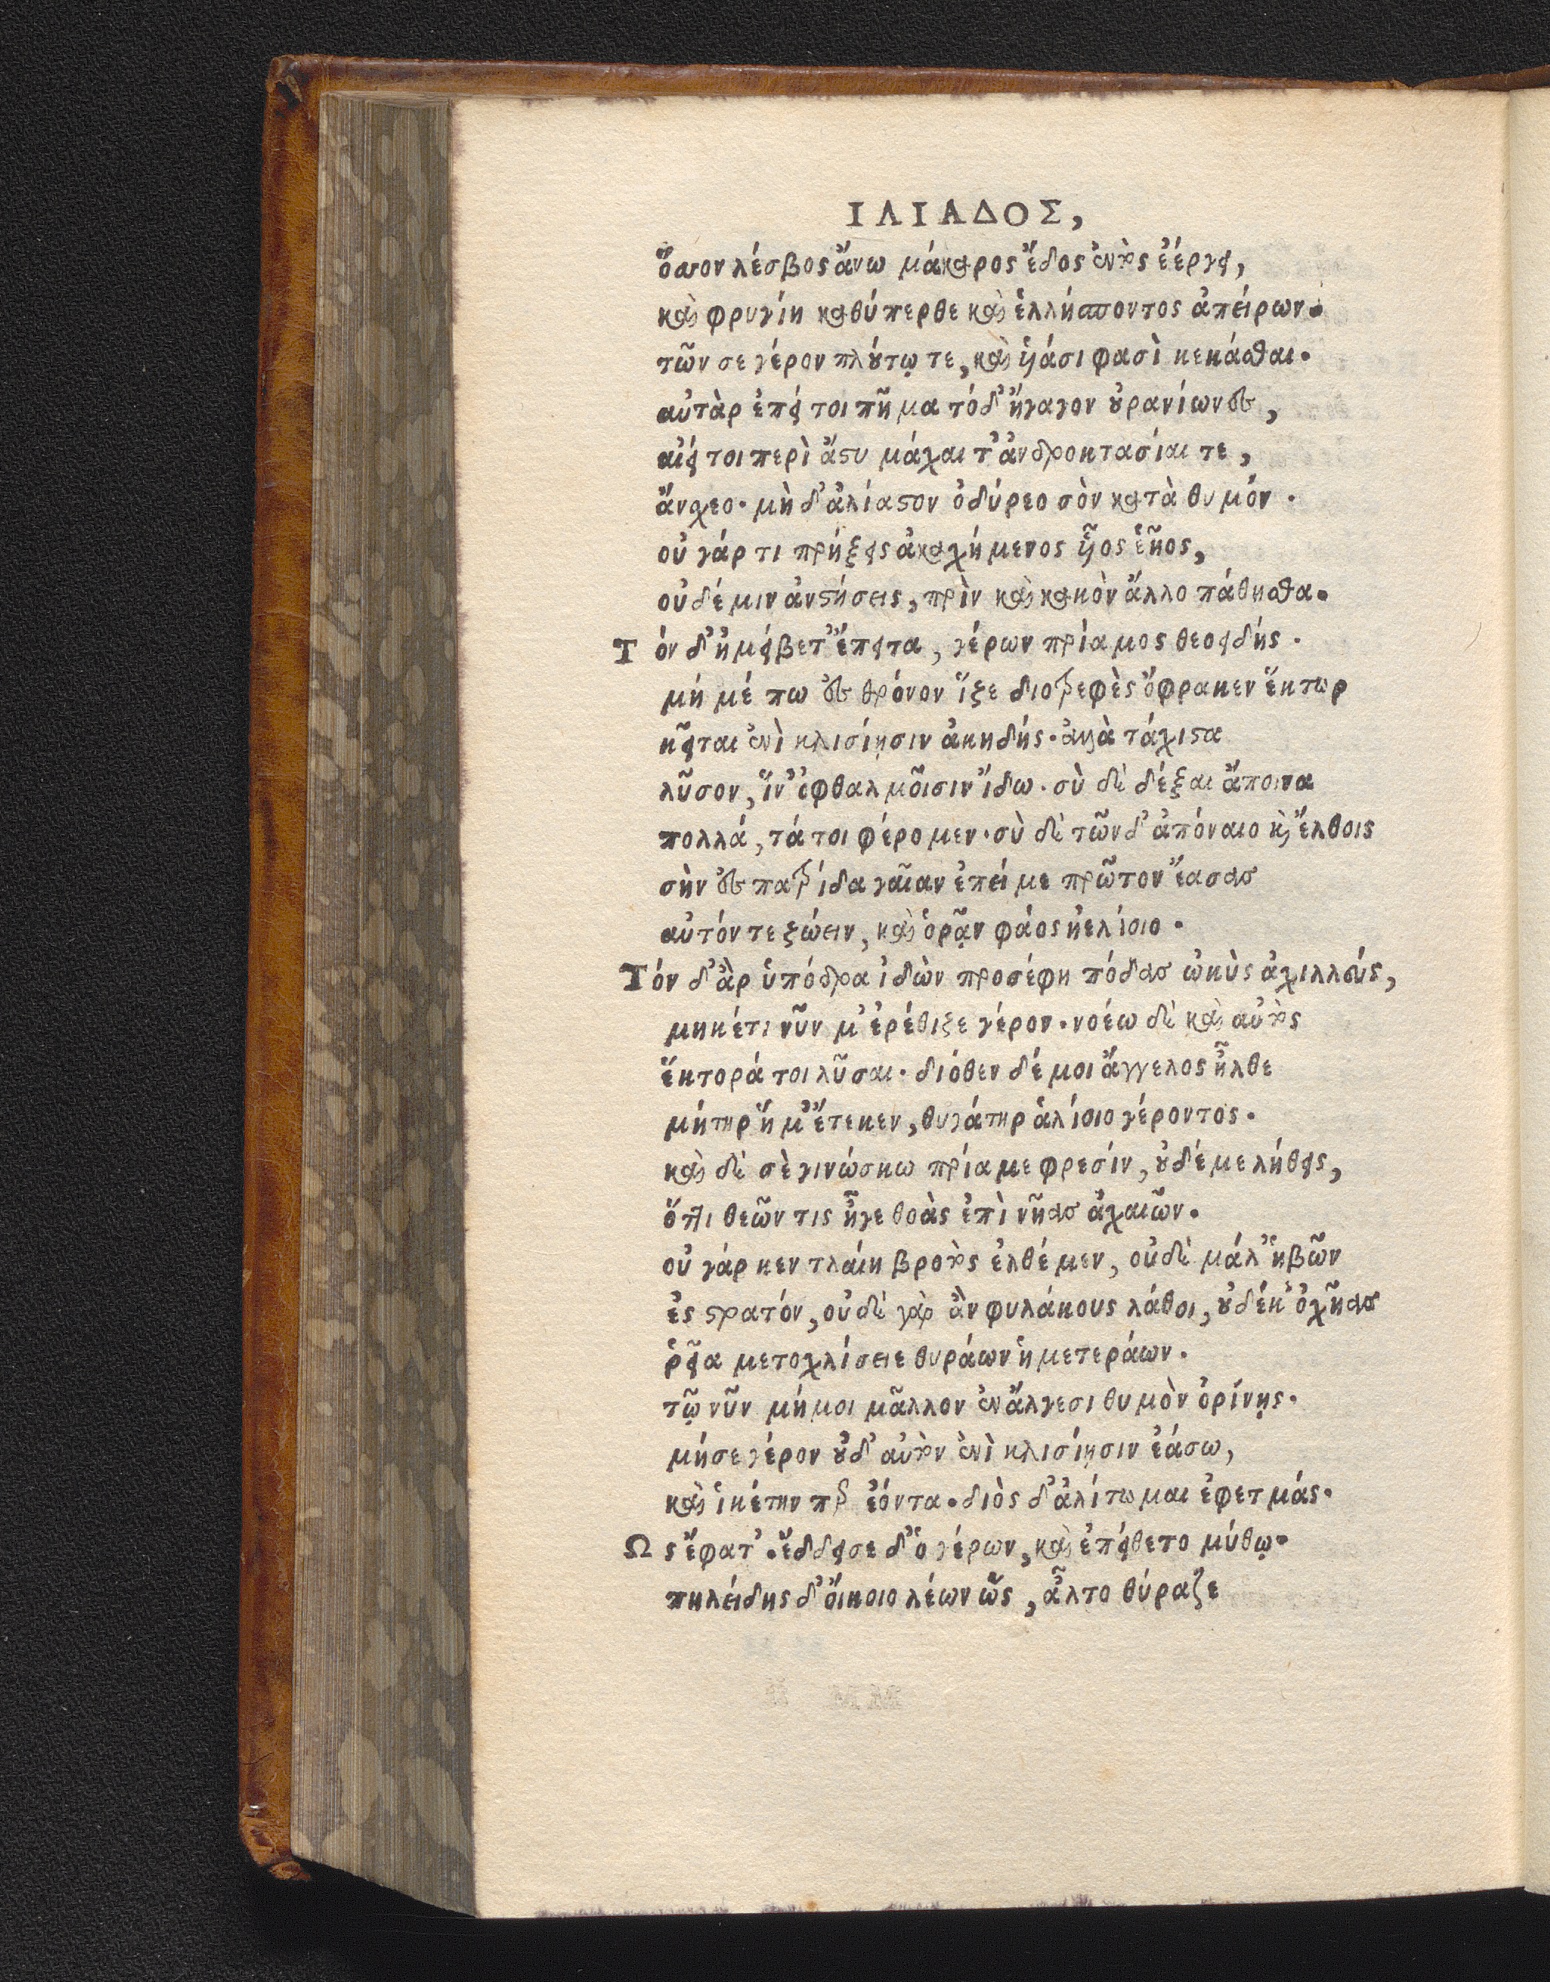 ΙΛΙΑΔΟΣ,
ὅσσον λέσβος ἄνω μάκαρος ἕδος ἐντὸς ἐέργει,
καὶ φρυγίη καθύπερθε καὶ ἑλλήσποντος ἀπείρων.
τῶν σε γέρον πλούτῳ τε, καὶ ὑιάσι φασὶ κεκάσθαι.
αὐτὰρ ἐπεί τοι πῆμα τόδ' ἤγαγον οὐρανίωνες,
αἰεί τοι περὶ ἄστυ μάχαι τ' ἀνδροκτασίαι τε,
ἄνσχεο. μὴ δ' ἀλίαστον ὀδύρεο σὸν κατὰ θυμόν.
οὐ γάρ τι πρήξεις ἀκαχήμενος ὑῖος ἑῆος,
οὐδέ μιν ἀνστήσεις, πρὶν καὶ κακὸν ἄλλο πάθησθα.
Τὸν δ' ἠμείβετ' ἔπειτα, γέρων πρίαμος θεοειδής.
μή μέ πω ἐς θρόνον ἵζε διοτρεφὲς ὄφρα κεν ἕκτωρ
κεῖται ἐνὶ κλισίῃσιν ἀκηδής. ἀλλὰ τάχιστα
λῦσον, ἵν' ὀφθαλμοῖσιν ἴδω. σὺ δὲ δέξαι ἄποινα
πολλά, τά τοι φέρομεν. σὺ δὲ τῶνδ' ἀπόναιο καὶ ἔλθοις
σὴν ἐς πατρίδα γαῖαν ἐπεί με πρῶτον ἔασας
αὐτόν τε ζώειν, καὶ ὁρᾷν φάος ἠελίοιο.
Τόν δ' ἂρ ὑπόδρα ἰδὼν προσέφη πόδας ὠκὺς ἀχιλλεύς,
μηκέτι νῦν μ' ἐρέθιζε γέρον. νοέω δὲ καὶ αὐτὸς
ἕκτορά τοι λῦσαι. διόθεν δέ μοι ἄγγελος ἦλθε
μήτηρ ἥ μ' ἔτεκεν, θυγάτηρ ἁλίοιο γέροντος.
καὶ δὲ σὲ γινώσκω πρίαμε φρεσίν, οὐδέ με λήθεις,
ὅττι θεῶν τις ἦγε θοὰς ἐπὶ νῆας ἀχαιῶν.
οὐ γάρ κεν τλαίη βροτὸς ἐλθέμεν, οὐδὲ μάλ' ἡβῶν
ἐς στρατόν, οὐδὲ γὰρ ἂν φυλάκους λάθοι, οὐδέ κ' ὀχῆας
ῥεῖα μετοχλίσειε θυράων ἡμετεράων.
τῷ νῦν μή μοι μᾶλλον ἐν ἄλγεσι θυμὸν ὀρίνῃς.
μή σε γέρον οὐδ' αὐτὸν ἐνὶ κλισίῃσιν ἐάσω,
καὶ ἱκέτην περ ἐόντα. διὸς δ' ἀλίτωμαι ἐφετμάς.
Ως ἔφατ'. ἔδδεισε δ' ὁ γέρων, καὶ ἐπείθετο μύθῳ.
πηλείδης δ' ὄικοιο λέων ὣς, ἆλτο θύραζε